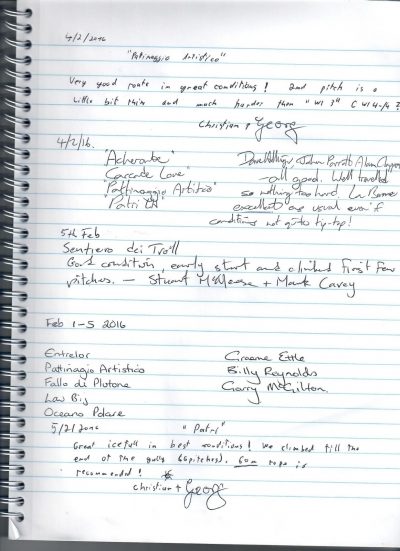 4/2/2016
"Pattinaggio Artistico"
Very good route in great conditions! 2nd pitch is a
little bit thin and much harder than "WI 3" (WI 4-/4?
Christian + Georg
4/2/16.
'Acherade' Dave John Alan
'Cascade Love' - all good. Well travelled
'Pattinaggio Artitico' so nothing too hard. La Barme
'Patri excellent as usual even if
conditions not quite tip-top!
5th Feb
Sentiero dei Troll
Good condition, early start and climbed first few
pitches. — Stuart + Mark Carey
Feb 1-5 2016
Entrelor Graeme Ettle
Pattinagio Artistico Billy Reynolds
Fallo di Plutone Garry McGilton.
Lau Bij
Oceano Polare
5/2/2016 "Patrí"
Great icefall in best conditions! We climbed till the
end of the gully (6 pitches). 60m rope is
recommended!
Christian + Georg